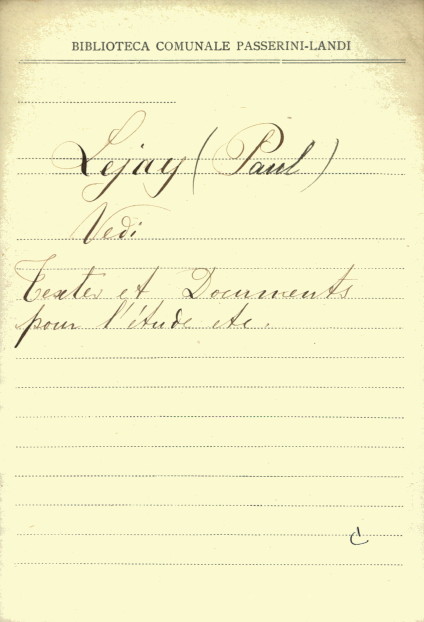 BIBLIOTECA COMUNALE PASSERINI-LANDI
Lejay (Paul)
Vedi
Textes et Documents
pour l'étude etc.